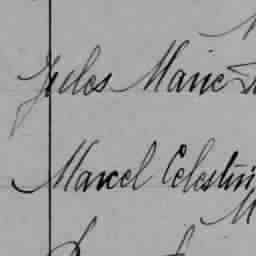 Jules Marie
Marcel Celestin